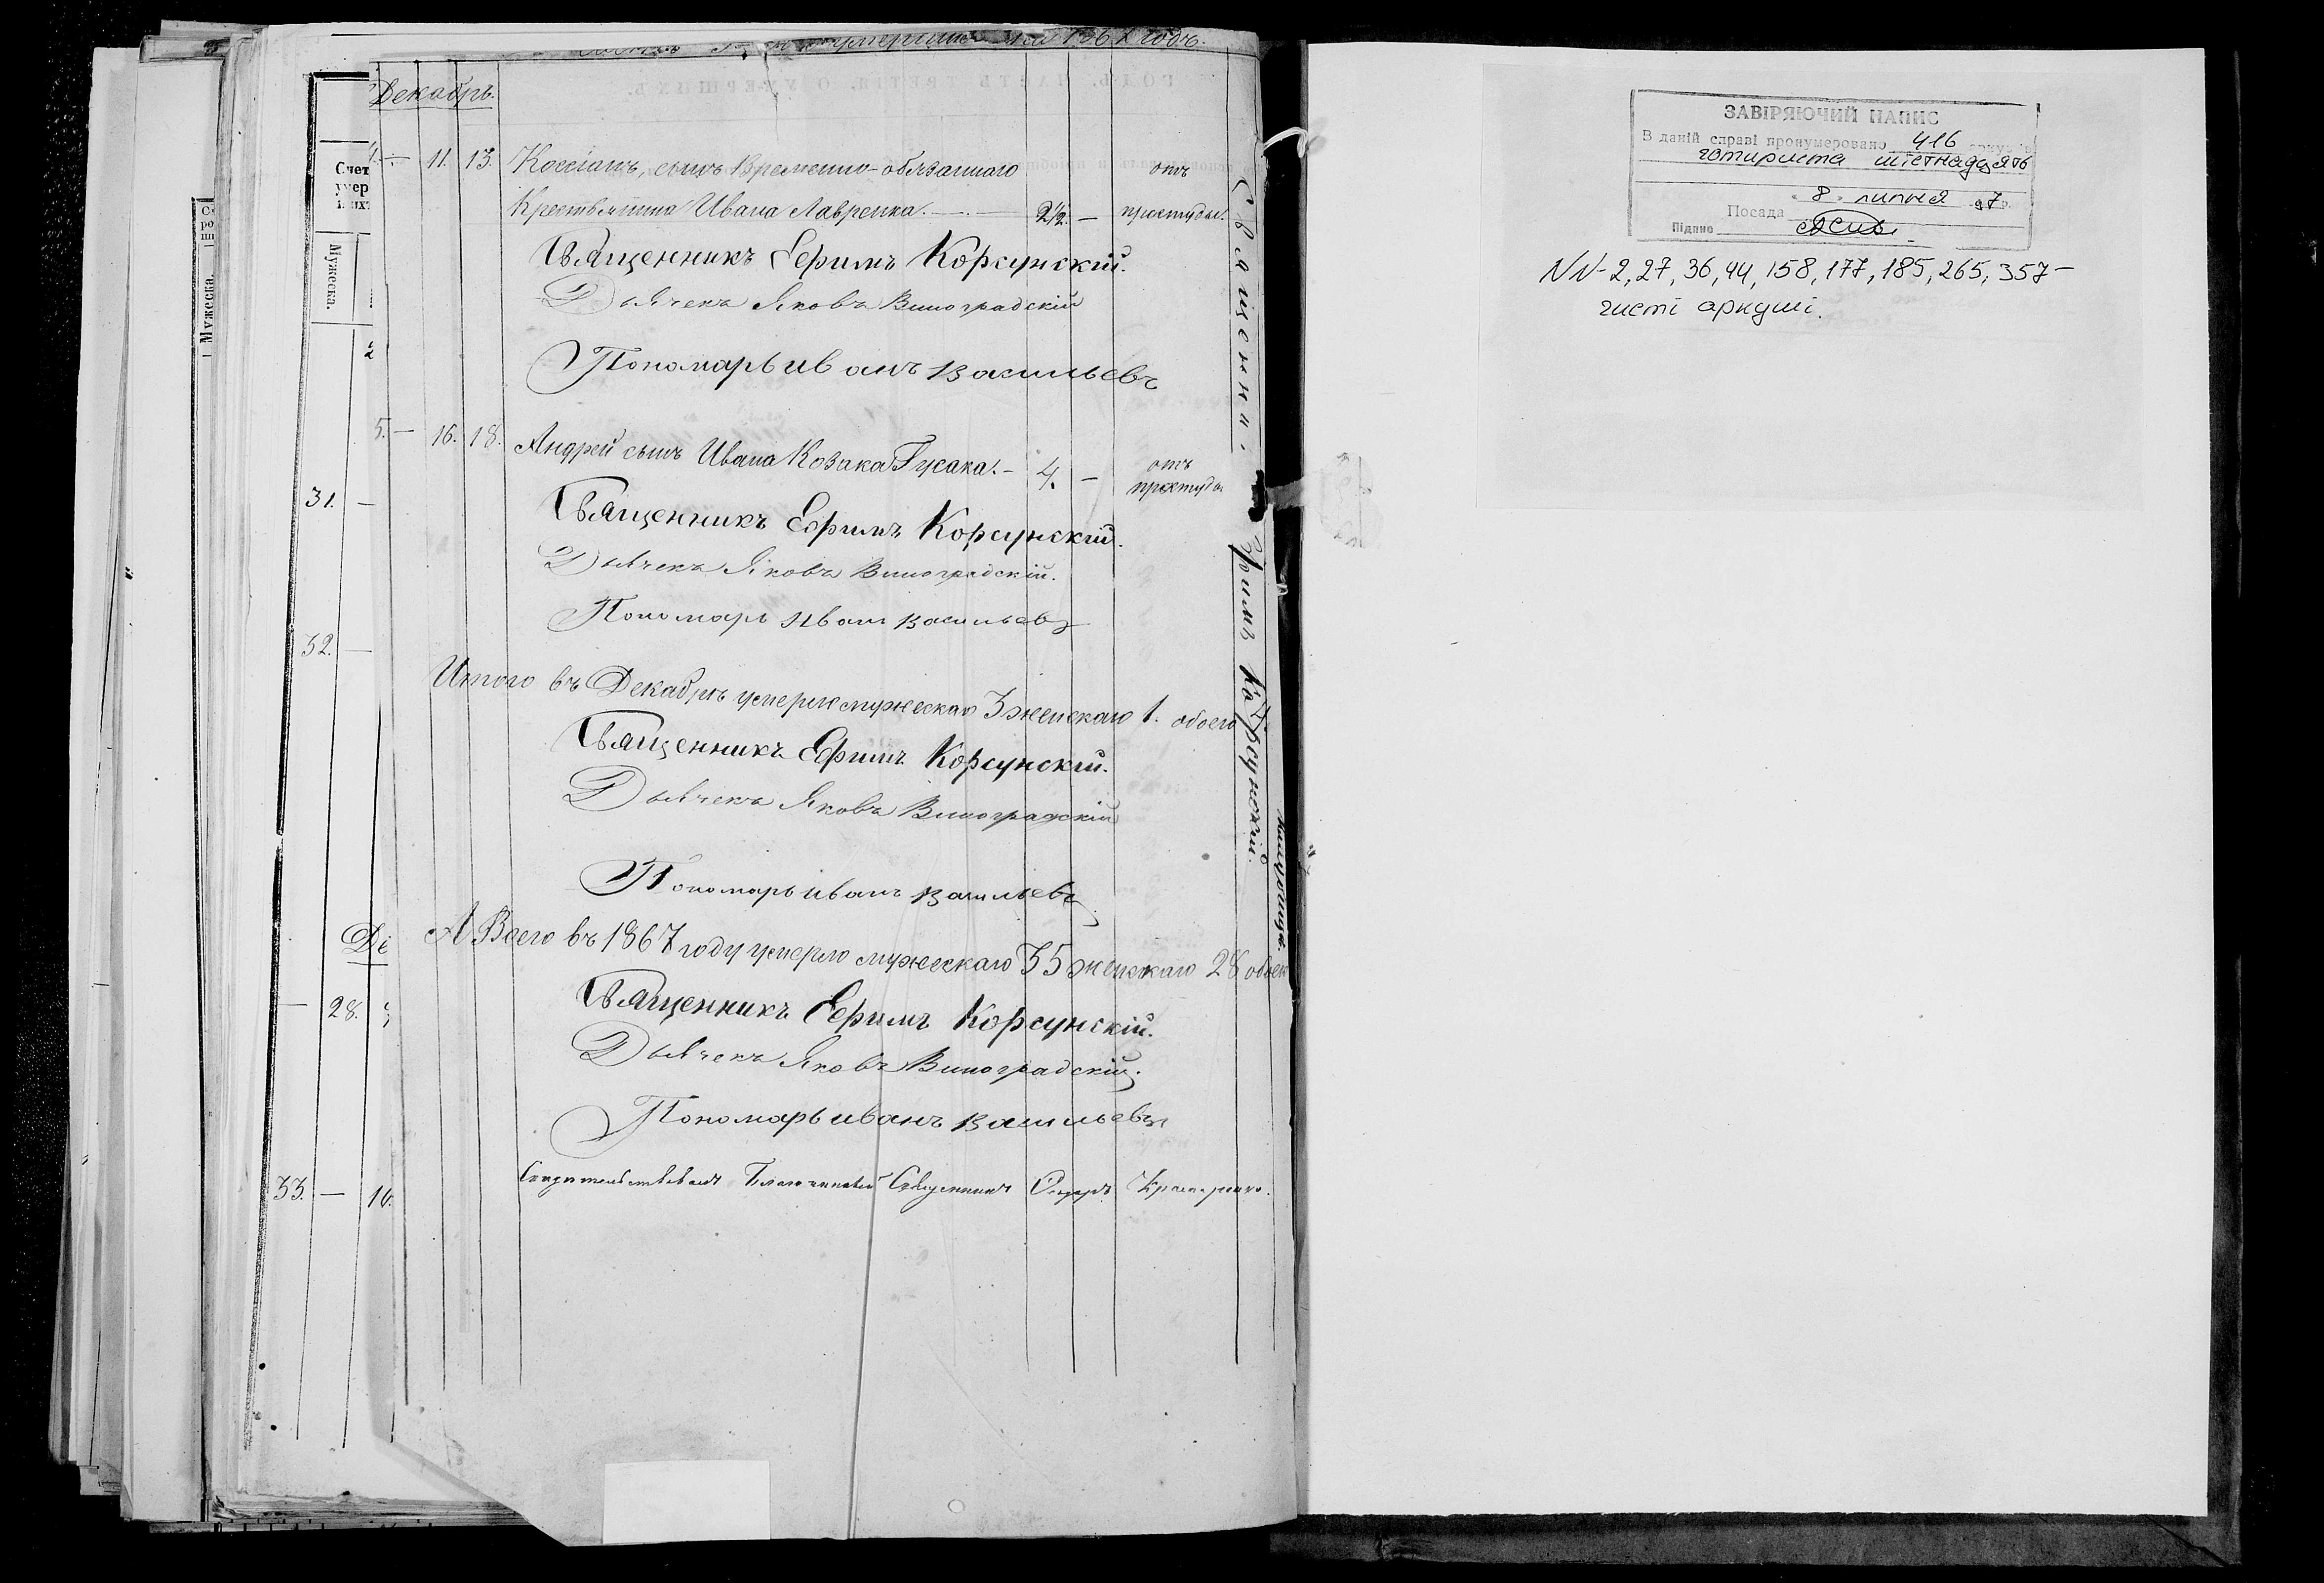 умершихъ на 1867 годъ.
Декабрь.
4. — 11. 13. Коссіанъ, сынъ Временно-обязаннаго отъ
Крестьянина Ивана Лавренка. — 2½. — простуды.
Священникъ Ефимъ Корсунскій.
Дьячекъ Яковъ Виноградскій
Пономарь иванъ васильевъ
5. — 16. 18. Андрей сынъ Ивана Козака Гусака. — 4. — отъ
простуды
Священникъ Ефимъ Корсунскій.
Дьячекъ Яковъ Виноградскій.
Пономарь Иванъ васильевъ
Итого въ Декабрѣ умерло мужескаго 3 женскаго 1. обоего
Священникъ Ефимъ Корсунскій.
Дьячекъ Яковъ Виноградскій
Пономарь иванъ васильевъ
А Всего въ 1867 году умерло мужескаго 35 женскаго 28 обоего
Священникъ Ефимъ Корсунскій.
Дьячекъ Яковъ Виноградскій.
Пономарь иванъ васильевъ
Свидѣтельствовалъ Благочинный Священникъ
Священни.
Ефимъ Корсунскій.
Счет
умер
Мужеска.
Мужеска.
2
31. —
32. —
Де
— 28.
33. — 16.
ЗАВІРЯЮЧИЙ НАПИС
В даній справі пронумеровано 416 аркушів
чотириста шістнадцять
"8" липня 97 р.
Посада
Підпис
NN-2, 27, 36, 44, 158, 177, 185, 265, 357 —
чисті аркуші.